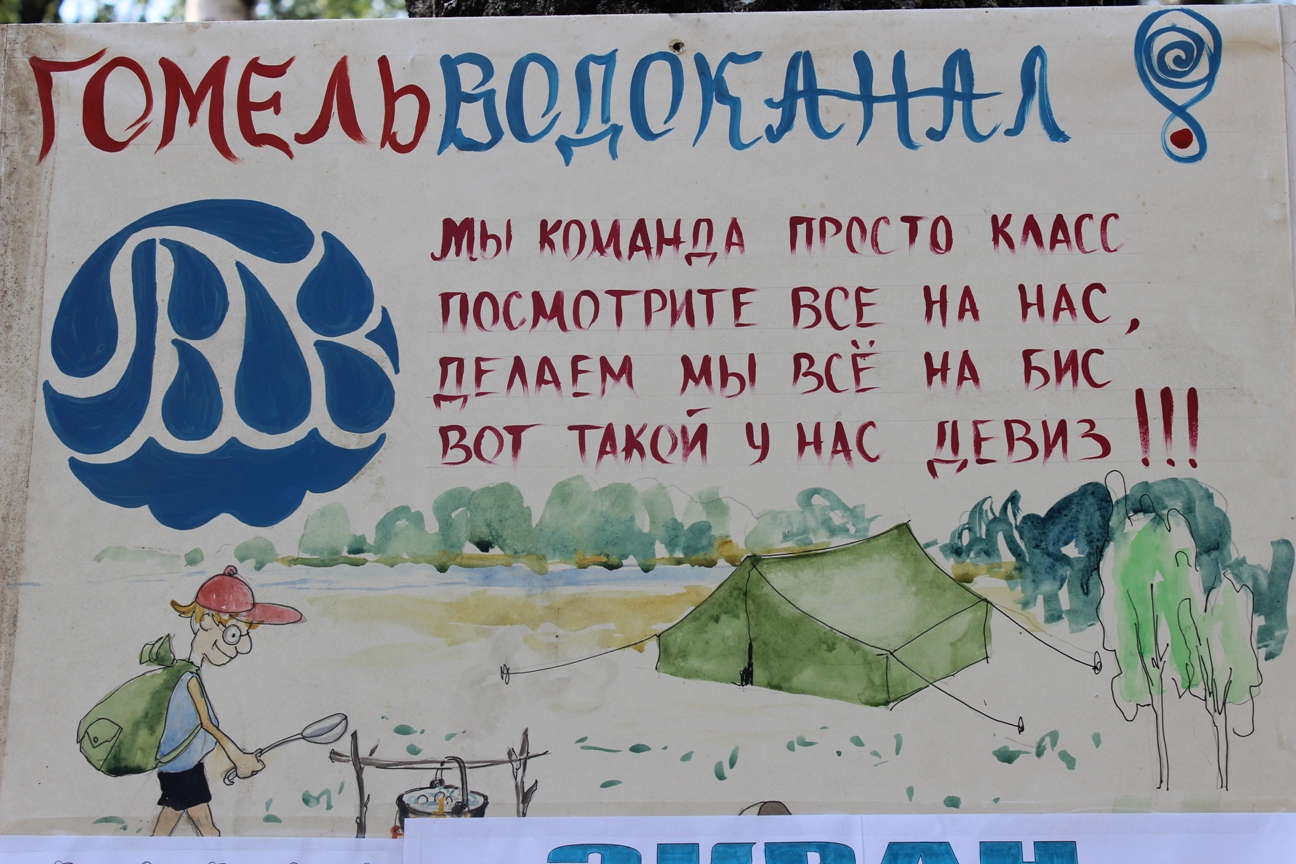 ГОМЕЛЬВОДОКАНАЛ
МЫ КОМАНДА ПРОСТО КЛАСС
ПОСМОТРИТЕ ВСЕ НА НАС,
ДЕЛАЕМ МЫ ВСЁ НА БИС
ВОТ ТАКОЙ У НАС ДЕВИЗ!!!